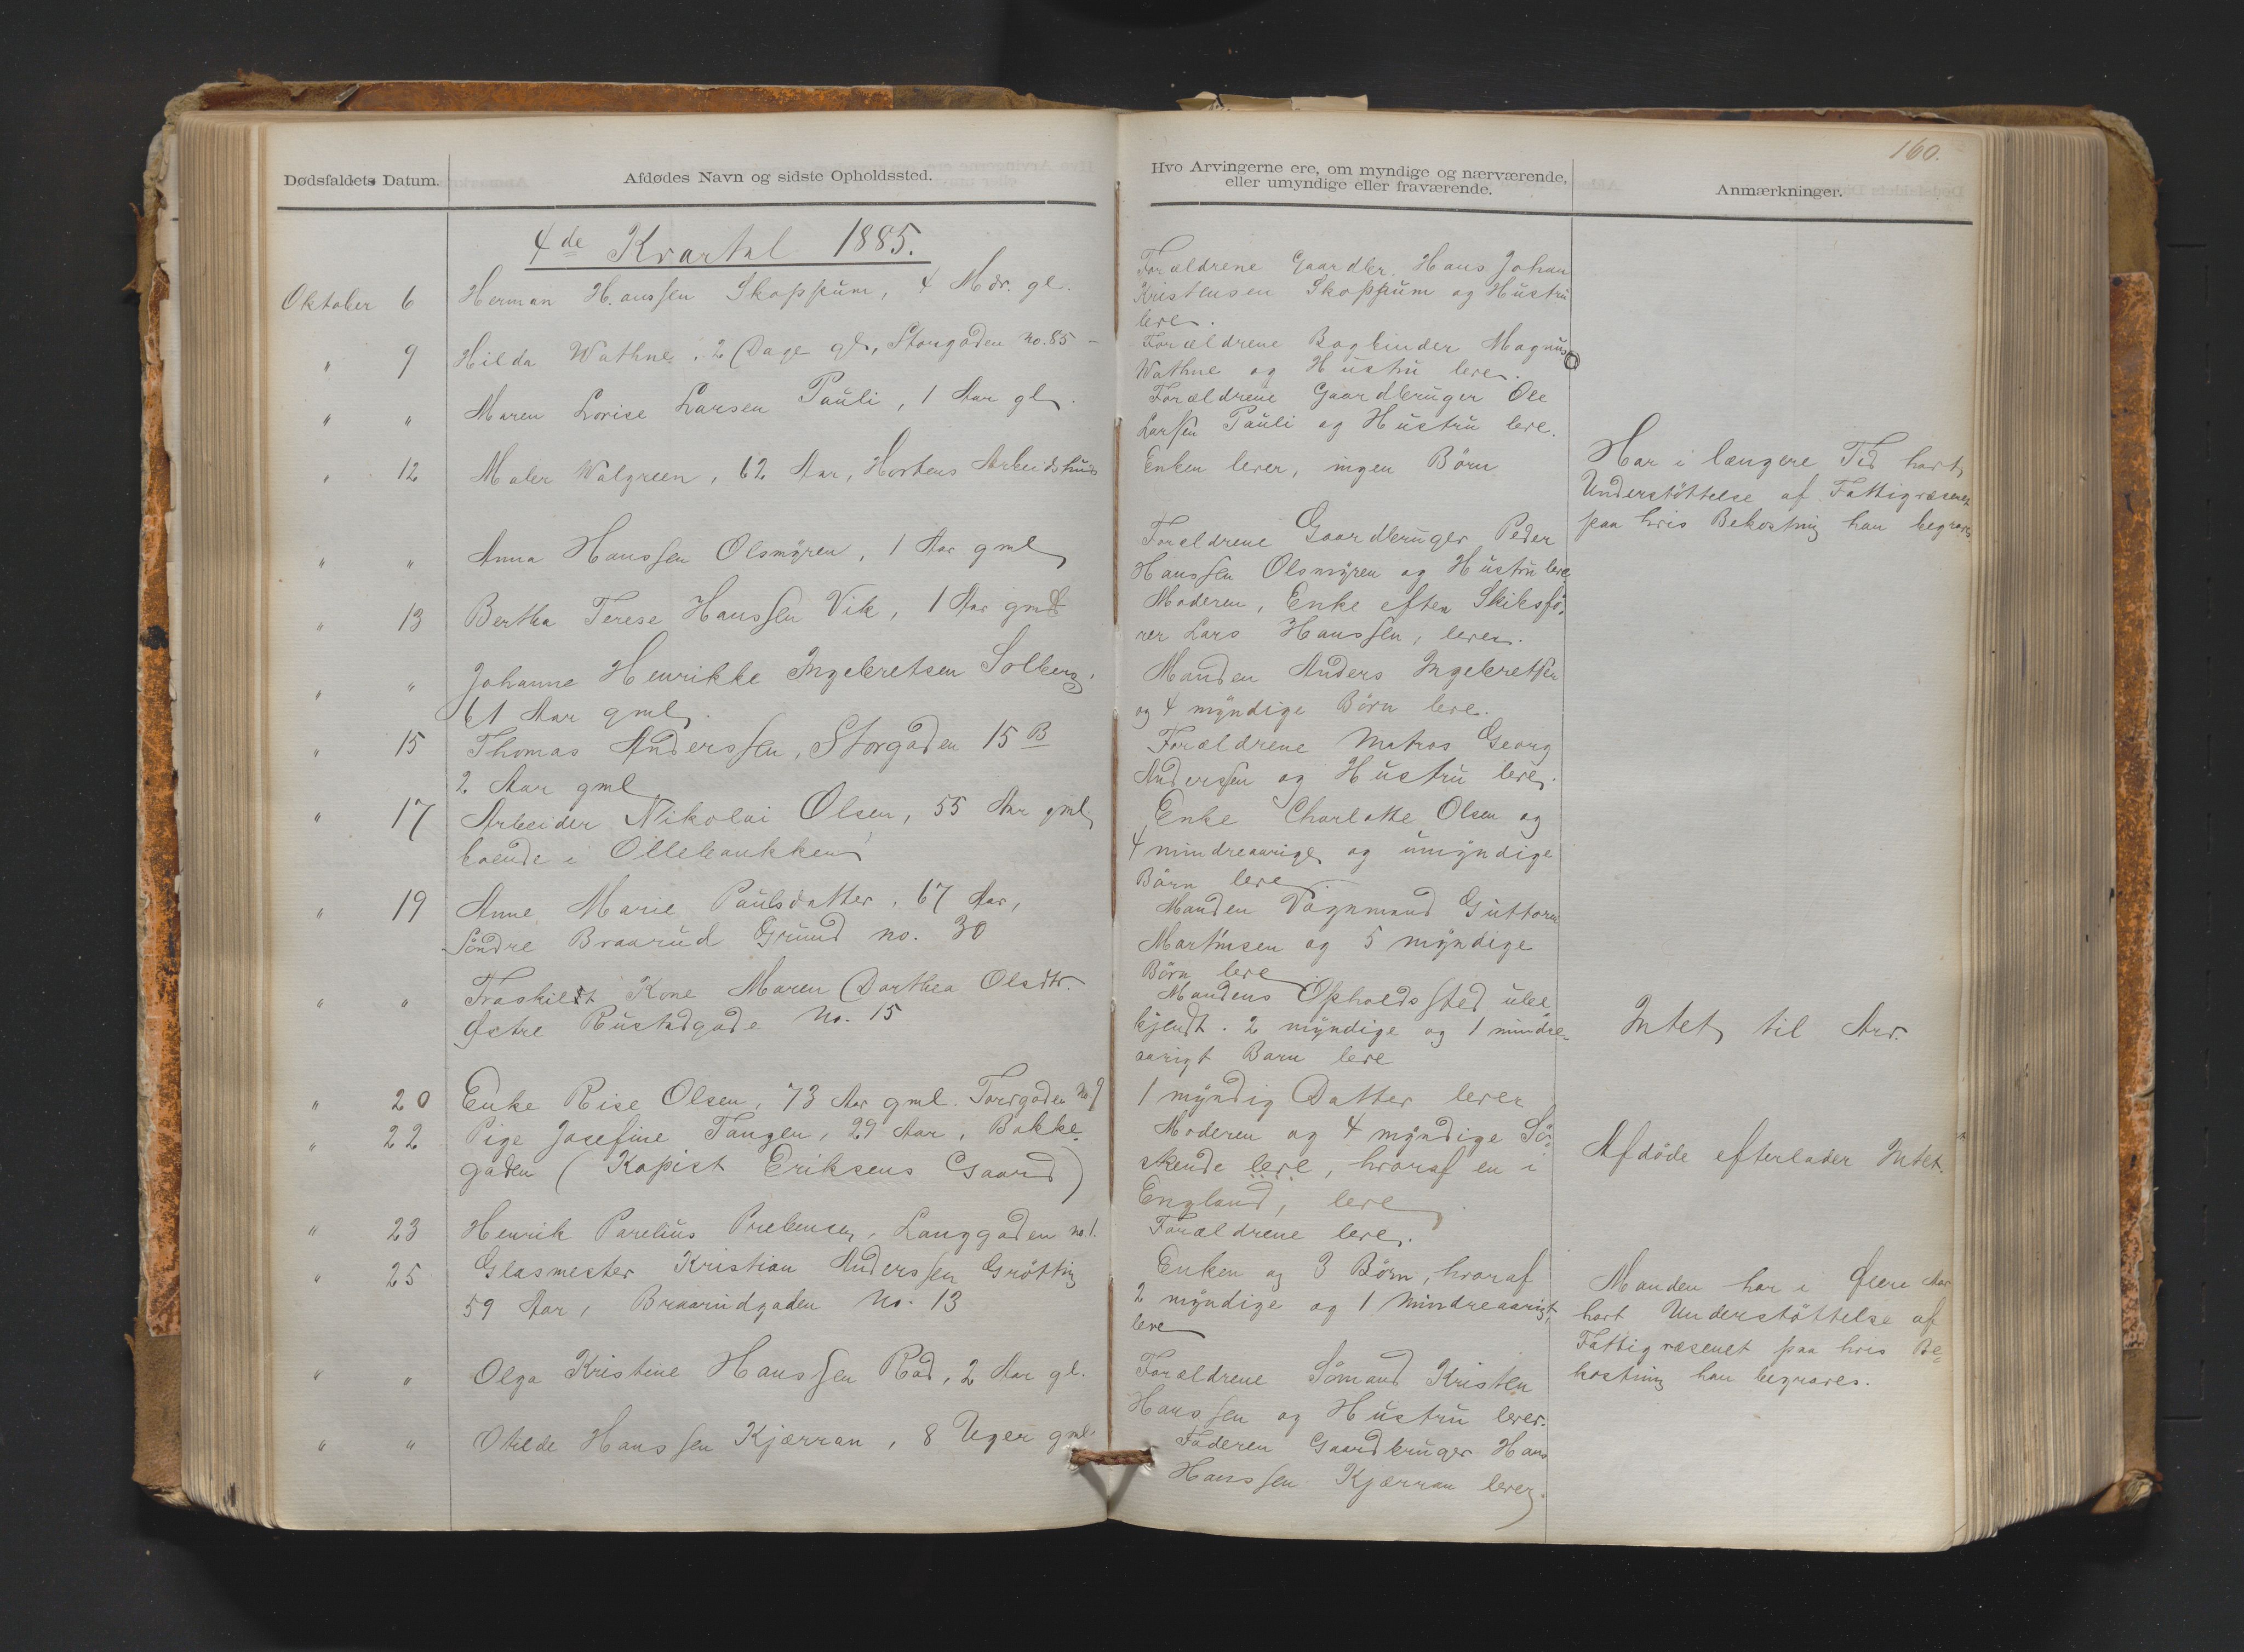 160.
Dødsfaldets Datum.
Afdødes Navn og sidste Opholdssted.
Hvo Arvingerne ere, om myndige og nærværende,
eller umyndige eller fraværende.
Anmærkninger.
4de Kvartal 1885.
Oktober 6 Herman Hanssen Skoppum, 4 Mdr. gl.
Forældrene Gaardbr. Hans Johan
Kristensen Skoppum og Hustru
leve.
" 9 Hilda Wathne, 2 Dage gl., Storgaden no. 85 -
Forældrene Bogbinder Magnus
Wathne og Hustru leve.
" " Maren Lovise Larsen Pauli, 1 Aar gl.
Forældrene Gaardbruger Ole
Larssen Pauli og Hustru leve.
" 12 Maler Walgreen, 62 Aar, Hortens Arbeidshus
Enken lever, ingen Børn
Har i længere Tid havt
Understöttelse af Fattigvæsenet
paa hvis Bekostning han begraves
" " Anna Hanssen Olsmyren, 1 Aar gml
Forældrene Gaardbruger Peder
Hanssen Olsmyren og Hustru leve
" 13 Bertha Terese Hanssen Vik, 1 Aar gml
Moderen, Enke efter Skibsfö-
rer Lars Hanssen, lever.
" " Johanne Henrikke Ingebretsen Solberg,
61 Aar gml.
Manden Anders Ingebretsen
og 4 myndige Börn leve.
" 15 Thomas Anderssen, Storgaden 15 B
2 Aar gml
Forældrene Matros Georg
Anderssen og Hustru leve.
" 17 Arbeider Nikolai Olsen, 55 Aar gml
boende i Ollebaukken
Enke Charlotte Olsen og
4 mindreaarige og umyndige
Börn leve.
" 19 Anne Marie Paulsdatter, 67 Aar,
Söndre Braarud Grund no. 30
Manden Vognmand Guttorm
Martinsen og 5 myndige
Börn leve
" " Fraskilt Kone Maren Dorthea Olsdtr.
Østre Rustadgade No. 15
Mandens Opholdssted ube-
kjendt. 2 myndige og 1 mindre-
aarigt Barn leve
Intet til Arv.
" 20 Enke Rise Olsen, 73 Aar gml. Torvgaden No. 9
1 myndig Datter lever
" 22 Pige Josefine Tangen, 29 Aar, Bakke-
gaden (Kopist Eriksens Gaard)
Moderen og 4 myndige Sö-
skende leve, hvoraf en i
England, leve
Afdöde efterlader Intet.
" 23 Henrik Parelius Prebensen, Langgaden no. 1.
Forældrene leve.
" 25 Glasmester Kristian Anderssen Grötting
59 Aar, Braarudgaden No. 13
Enken og 3 Börn, hvoraf
2 myndige og 1 mindreaarigt,
leve
Manden har i flere Aar
havt Understöttelse af
Fattigvæsenet paa hvis Be-
kostning han begraves.
" " Olga Kristine Hanssen Rød, 2 Aar gl.
Forældrene Sömand Kristen
Hanssen og Hustru lever.
" " Otilde Hanssen Kjærran, 8 Uger gml
Faderen Gaardbruger Hans
Hanssen Kjærran lever.